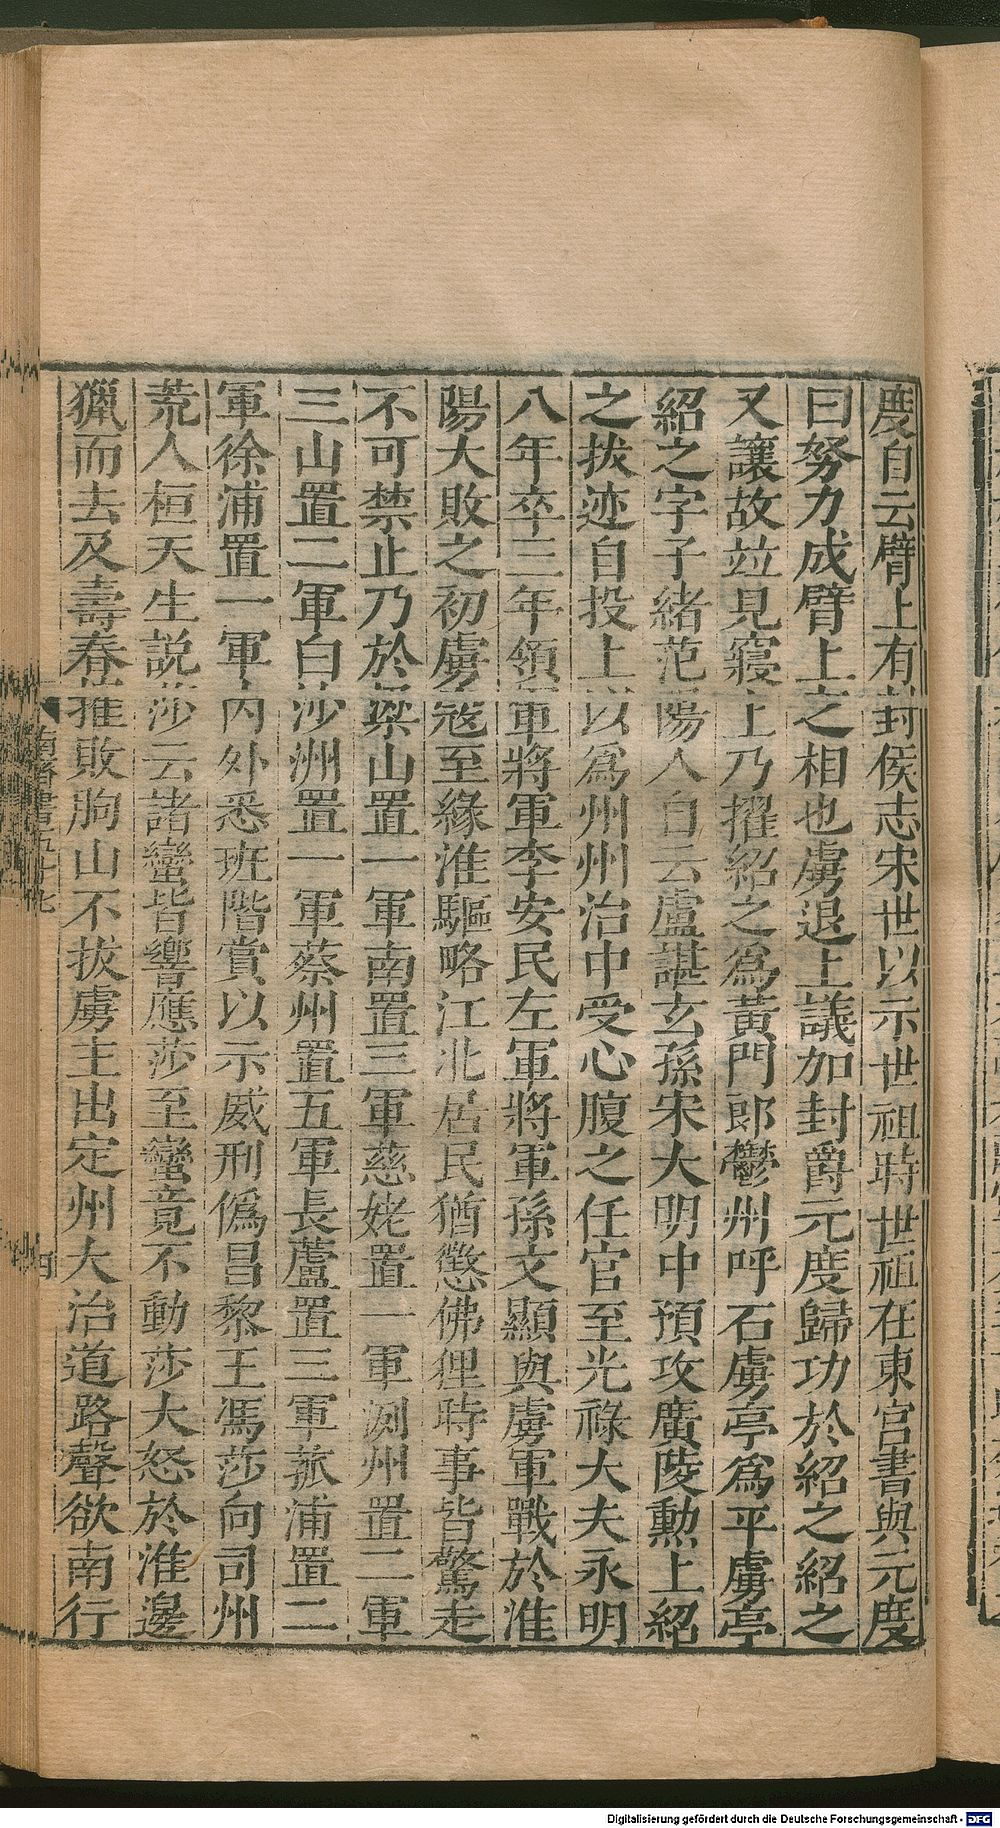 度自云臂上有封侯志宋世以示世祖時世祖在東宮書與元度
曰努力成臂上之相也虜退上議加封爵元度歸功於紹之紹之
又讓故竝見寢上乃擢紹之爲黃門郎鬱州呼石虜亭爲平虜亭
紹之字子緒范陽人自云盧諶玄孫宋大明中預攻廣陵勳上紹
之拔迹自投上以爲州治中受心腹之任官至光祿大夫永明
八年卒三年領軍將軍李安民左軍將軍孫文顯與虜軍戰於淮
陽大敗之初虜寇至緣淮驅略江北居民猶懲佛狸時事皆驚走
不可禁止乃於梁山置一軍南置三軍慈姥置一軍洌州置二軍
三山置二軍白沙洲置一軍蔡州置五軍長蘆置三軍菰浦置二
軍徐浦置一軍內外悉班階賞以示威刑僞昌黎王馮莎向司州
荒人桓天生説莎云諸蠻皆響應莎至蠻竟不動莎大怒於淮邊
獵而去及壽春摧敗朐山不拔虜主出定州大治道路聲欲南行
Digitalisierung gefördert durch die Deutsche Forschungsgemeinschaft - DFG